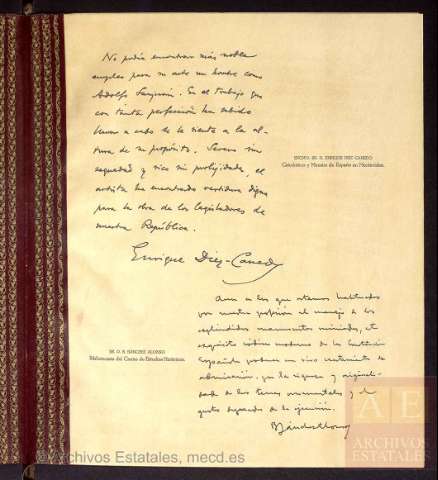 No podía encontrar más noble
empleo para su arte un hombre como
Adolfo
. En el trabajo que
con tanta perfección ha sabido
llevar a cabo se le siente a la al-
tura de su propósito. Severo sin
sequedad y rico sin prolijidad, el
artista ha encontrado vestidura digna
para la obra de los legisladores de
nuestra República.
Enrique Díez-Canedo
EXCMO. SR. D. ENRIQUE DIEZ CANEDO
Catedrático y Ministro de España en Montevideo.
Aun a los que estamos habituados
por nuestra profesión al manejo de los
espléndidos manuscritos miniados, este
exquisito códice moderno de la Constitución
Española produce un vivo sentimiento de
admiración, por la riqueza y originali-
dad de los temas ornamentales y el
gusto depurado de la ejecución.
BSánchezAlonso
SR. D. B. SÁNCHEZ ALONSO
Bibliotecario del Centro de Estudios Históricos.
© Archivos Estatales, mecd.es
AE
ARCHIVOS
ESTATALES